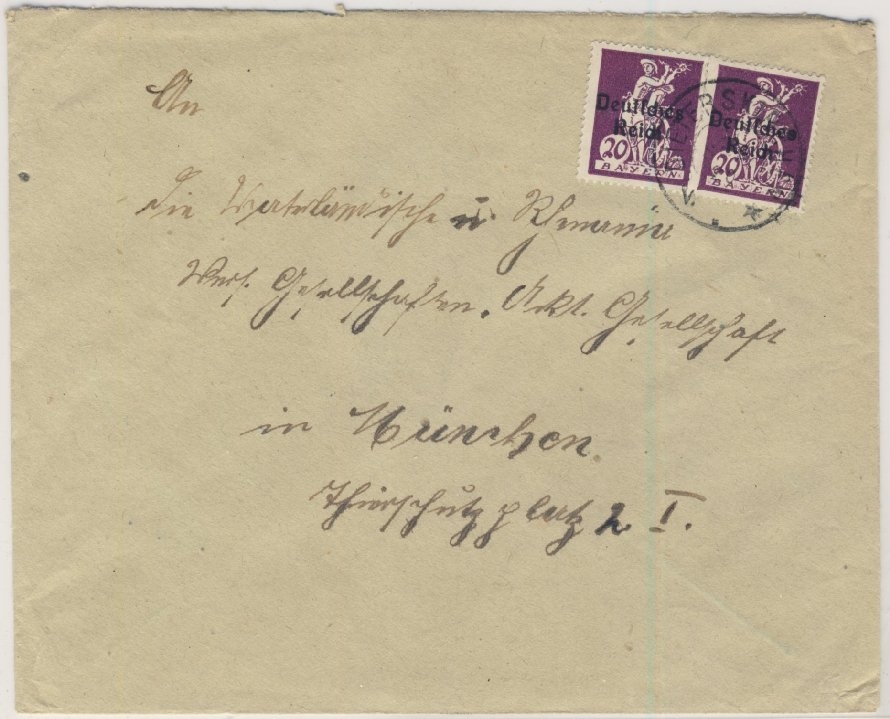 An
die Vaterländische u. Rhenania
Vers. Gesellschaften. Akt. Gesellschaft
in München.
Thierschplatz 2 I.
Deutsches
Reich
20
BAYERN
Deutsches
Reich
20
BAYERN